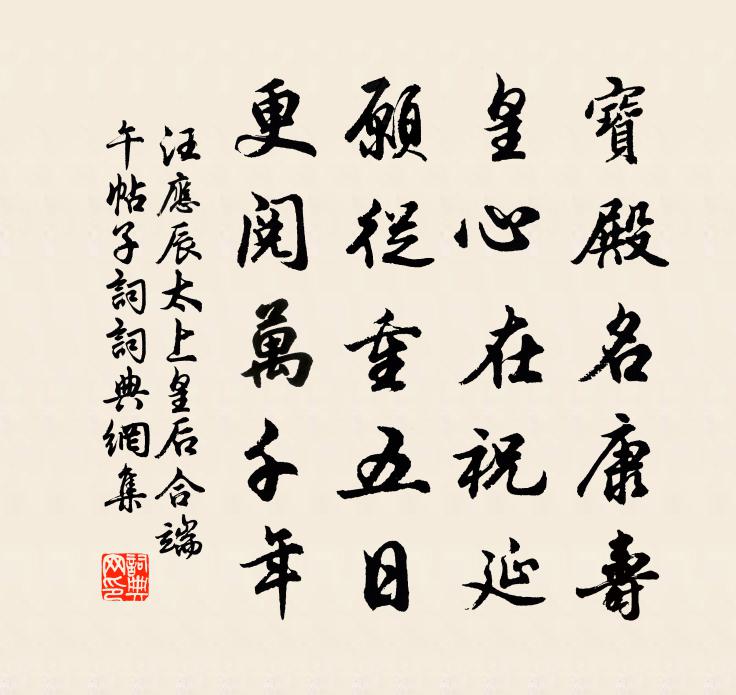 寶殿名康壽
皇心在祝延
願從重五日
更閱萬千年
汪應辰太上皇后合端
午帖子詞詞典網集
詞典
网印